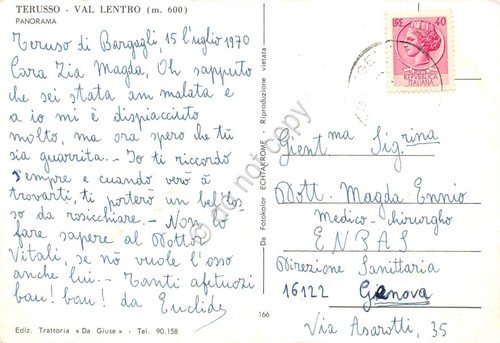 TERUSSO - VAL LENTRO (m. 600)
PANORAMA
Teruso di Bargagli, 15 luglio 1970
Cara Zia Magda, Oh sapputo
che sei stata am malata e
a io mi è dispiacciuto
molto, ma ora spero che tu
sia guarrita.- Io ti riccordo
sempre e cuando verò à
trovarti, ti porterò un bell'os-
so da rosicchiare.- Non lo
fare sapere al Dottor
Vitali, se nò vuole l'osso
anche lui.- Tanti afetuozi
bau! bau! da Euclide
Ediz. Trattoria « Da Giuse » - Tel. 90.158
Da Fotokolor EKTAKROME - Riproduzione vietata
166
IRE 40
REPUBBLICA
ITALIANA
Gent.ma Sig.rina
Dott. Magda Ennio
Medico-chirurgho
ENPAS
Direzione Sanittaria
16122 Genova
Via Asarotti, 35
do not copy